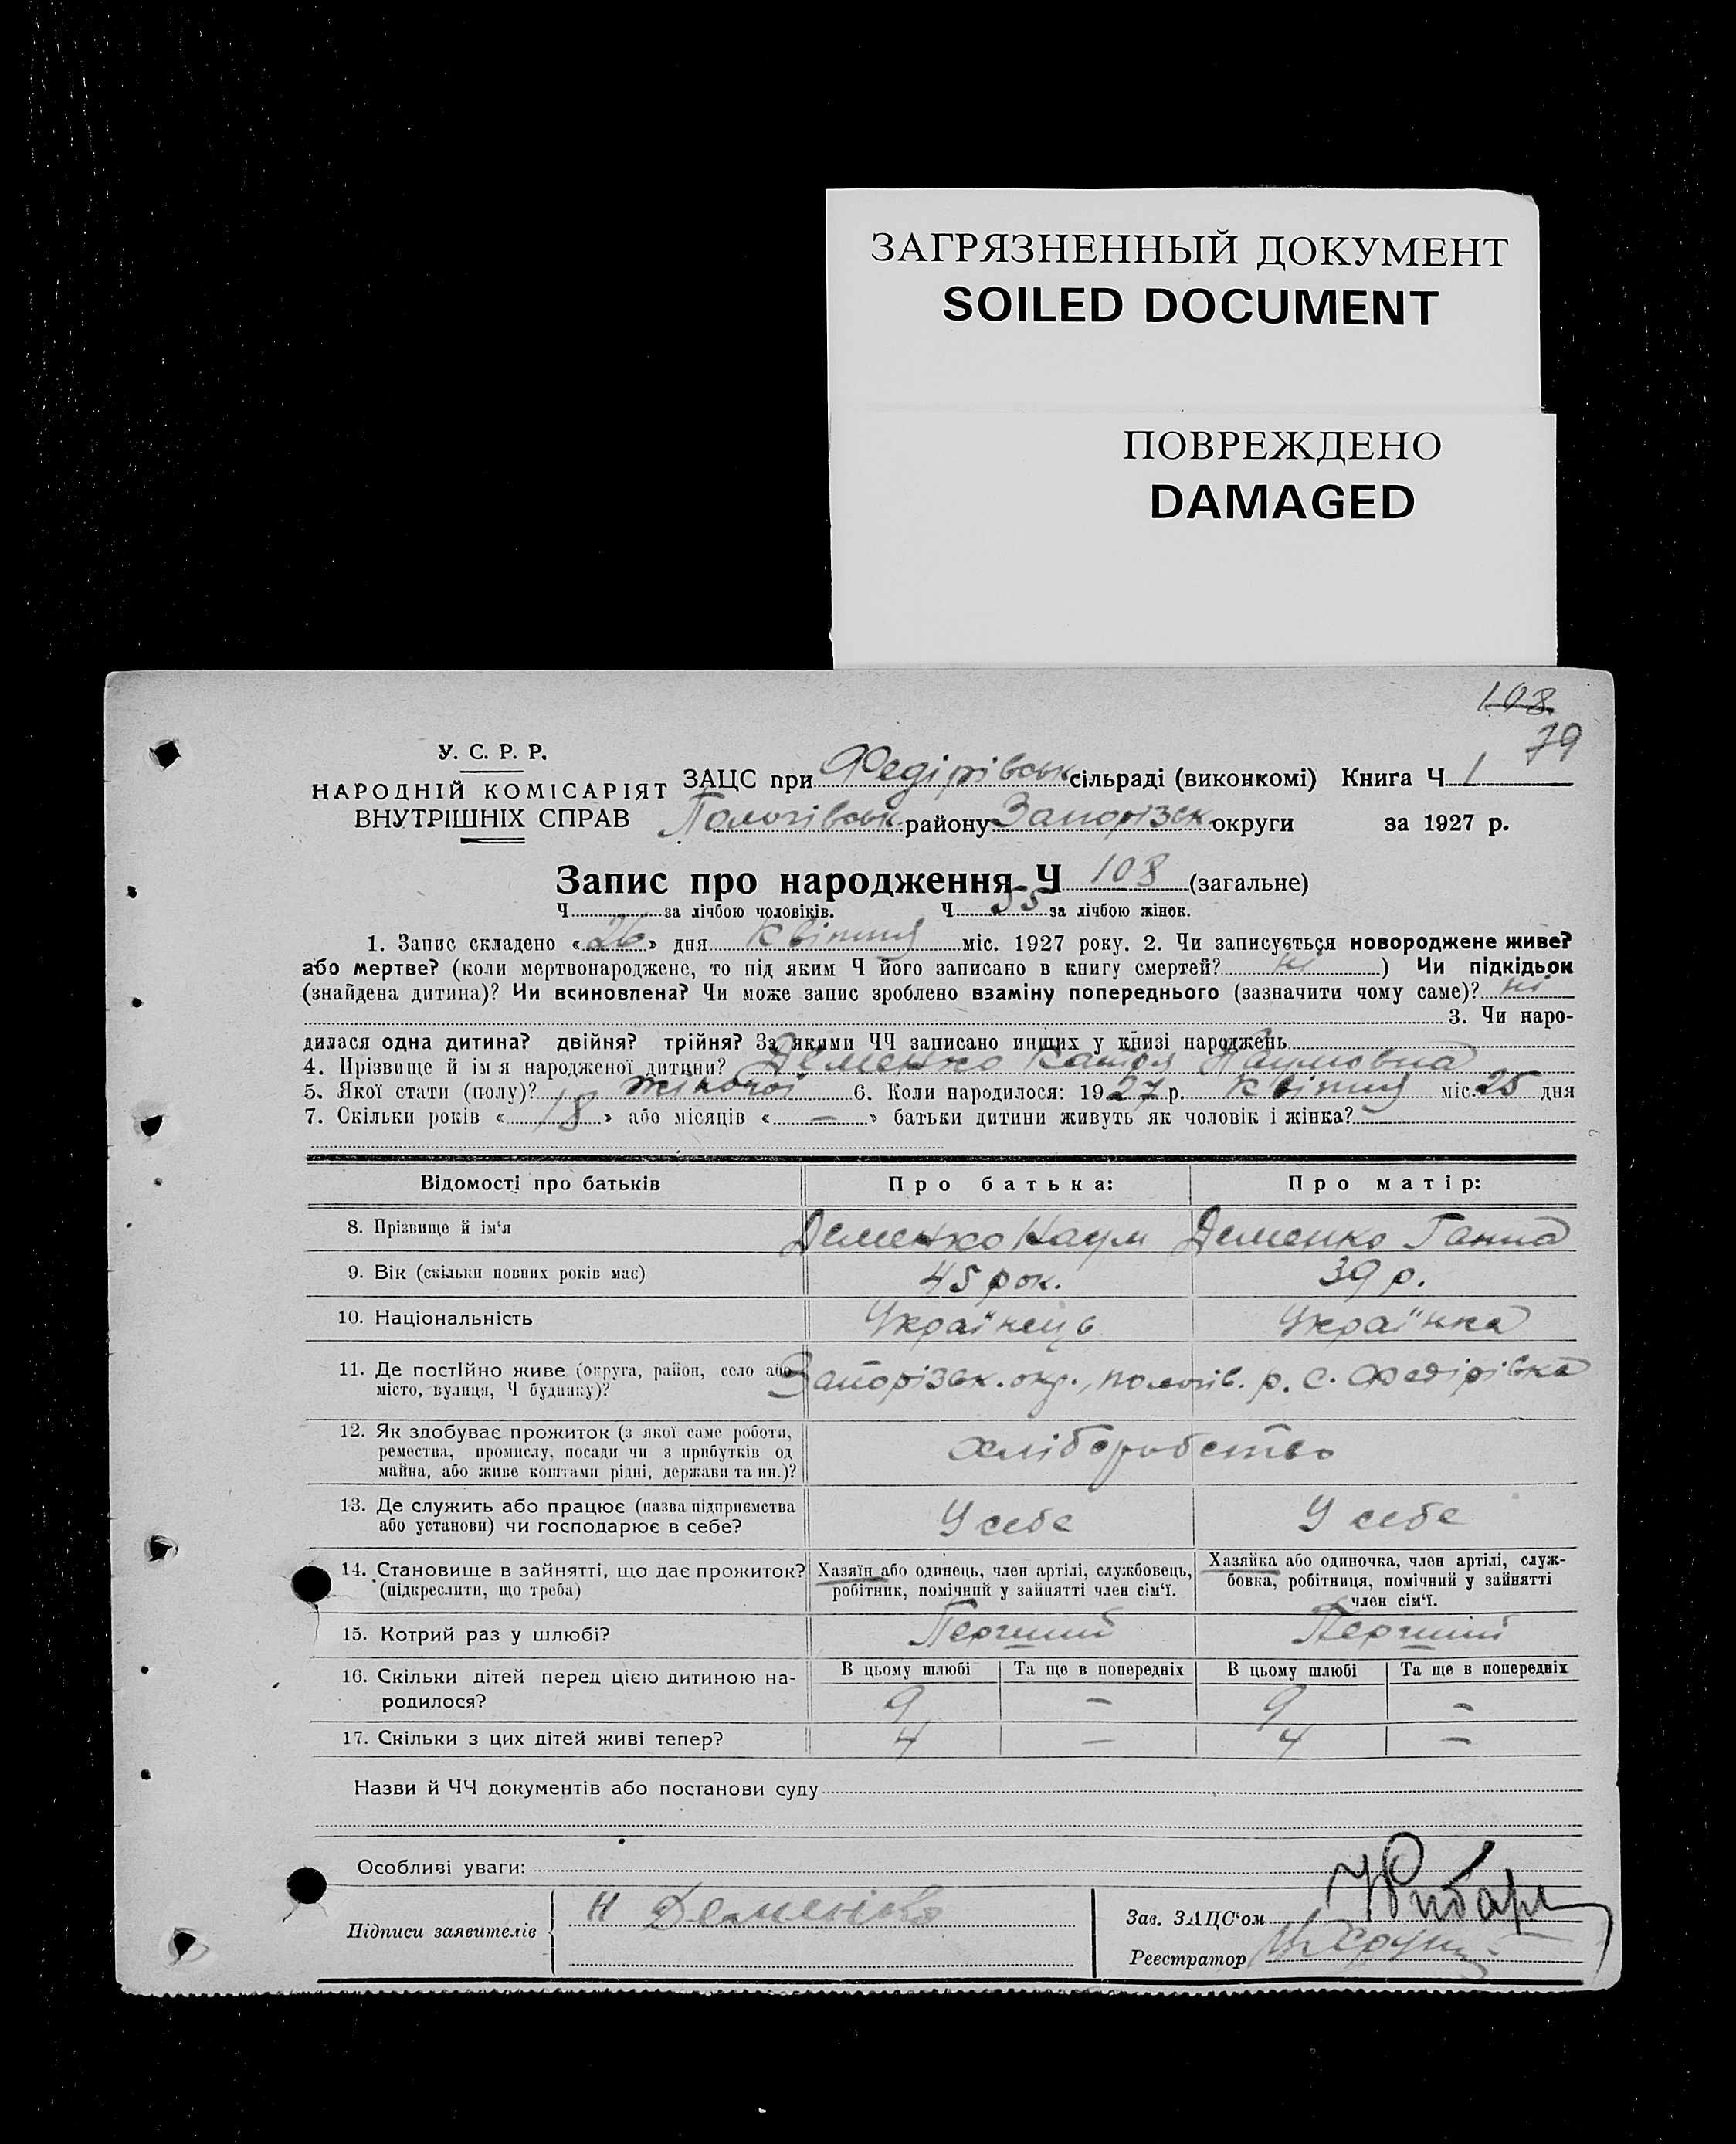 ЗАГРЯЗНЕННЫЙ ДОКУМЕНТ
SOILED DOCUMENT
ПОВРЕЖДЕНО
DAMAGED
108
79
У. С. Р. Р.
НАРОДНІЙ КОМІСАРІЯТ
ВНУТРІШНІХ СПРАВ
ЗАЦС при Федірівськ сільраді (виконкомі) Книга Ч. 1
Пологівськ району Запорізск округи за 1927 р.
Запис про народження Ч 108 (загальне)
Ч. за лічбою чоловіків. Ч. 55 за лічбою жінок.
1. Запис складено «26» дня квітня міс. 1927 року. 2. Чи записується новороджене живе?
або мертве? (коли мертвонароджене, то під яким Ч його записано в книгу смертей? ні ) Чи підкідьок
(знайдена дитина)? Чи всиновлена? Чи може запис зроблено взаміну попереднього (зазначити чому саме)? ні
3. Чи наро-
дилася одна дитина? двійня? трійня? За якими ЧЧ записано инших у книзі народжень
4. Прізвище й ім я народженої дитини? Деменко Катря Наумовна
5. Якої стати (полу)? жіночої 6. Коли народилося: 1927 р. квітня міс. 25 дня
7. Скільки років «18» або місяців «—» батьки дитини живуть як чоловік і жінка?
Відомості про батьків Про батька: Про матір:
8. Прізвище й ім'я Деменко Наум Деменко Ганна
9. Вік (скільки повних років має) 45 рок. 39 р.
10. Національність Українець Українка
11. Де постійно живе (округа, район, село або
місто, вулиця, Ч будинку)? Запорізьк. окр., пологів. р. с. Федірівка
12. Як здобуває прожиток (з якої саме роботи,
ремества, промислу, посади чи з прибутків од
майна, або живе коштами рідні, держави та ин.)? хліборобство
13. Де служить або працює (назва підприємства
або установи) чи господарює в себе? У себе У себе
14. Становище в зайнятті, що дає прожиток?
(підкреслити, що треба)
Хазяїн або одинець, член артілі, службовець,
робітник, помічний у зайнятті член сім'ї.
Хазяйка або одиночка, член артілі, служ-
бовка, робітниця, помічний у зайнятті
член сім'ї.
15. Котрий раз у шлюбі? Перший Перший
16. Скільки дітей перед цією дитиною на-
родилося?
В цьому шлюбі Та ще в попередніх В цьому шлюбі Та ще в попередніх
9 — 9 —
17. Скільки з цих дітей живі тепер? 4 — 4 —
Назви й ЧЧ документів або постанови суду
Особливі уваги:
Підписи заявителів Н Деменко
Зав. ЗАЦС'ом
Реєстратор